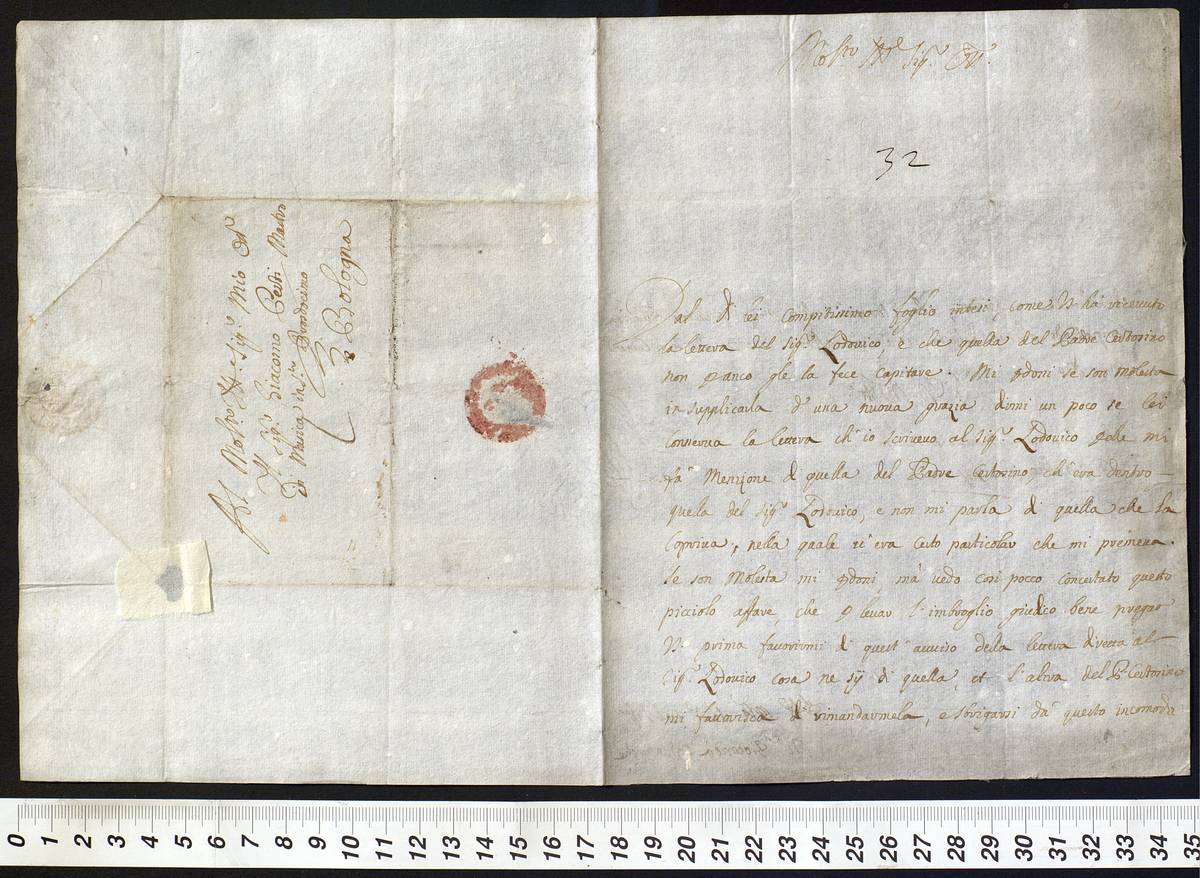 Al Molto Ill.e Sig.r Mio Oss.mo
Il Sig.r Giacomo Perti Mastro
di Musica in
Bologna
Molto Ill.e Sig.r
32
Dal di lei Compitissimo foglio intesi, come VS ha ricevuto
la lettera del Sig.r Lodovico, e che quella del Padre Certosino
non anco gle la fece Capitare. Mi pdoni se son molesta
in supplicarla d'una nuova grazia dirmi un poco se lei
Conserva la lettera ch'io scrivevo al Sig.r Lodovico mi
fa Menzione di quella del Padre Certosino, ch'era dentro
quella del Sig.r Lodovico, e non mi parla di quella che la
Copriva, nella quale v'era Certo particolar che mi premeva.
Se son Molesta mi pdoni mà vedo così pocco Concertato questo
picciolo affare, che p levar l'imbroglio giudico bene pregar
VS prima favorirmi di quest'avviso della lettera diretta al
Sig.r Lodovico cosa ne sij di quella, et l'altra del P. Certosino
mi favorisca di rimandarmela, e sbrigarsi da questo incomodo
0 1 2 3 4 5 6 7 8 9 10 11 12 13 14 15 16 17 18 19 20 21 22 23 24 25 26 27 28 29 30 31 32 33 34 35